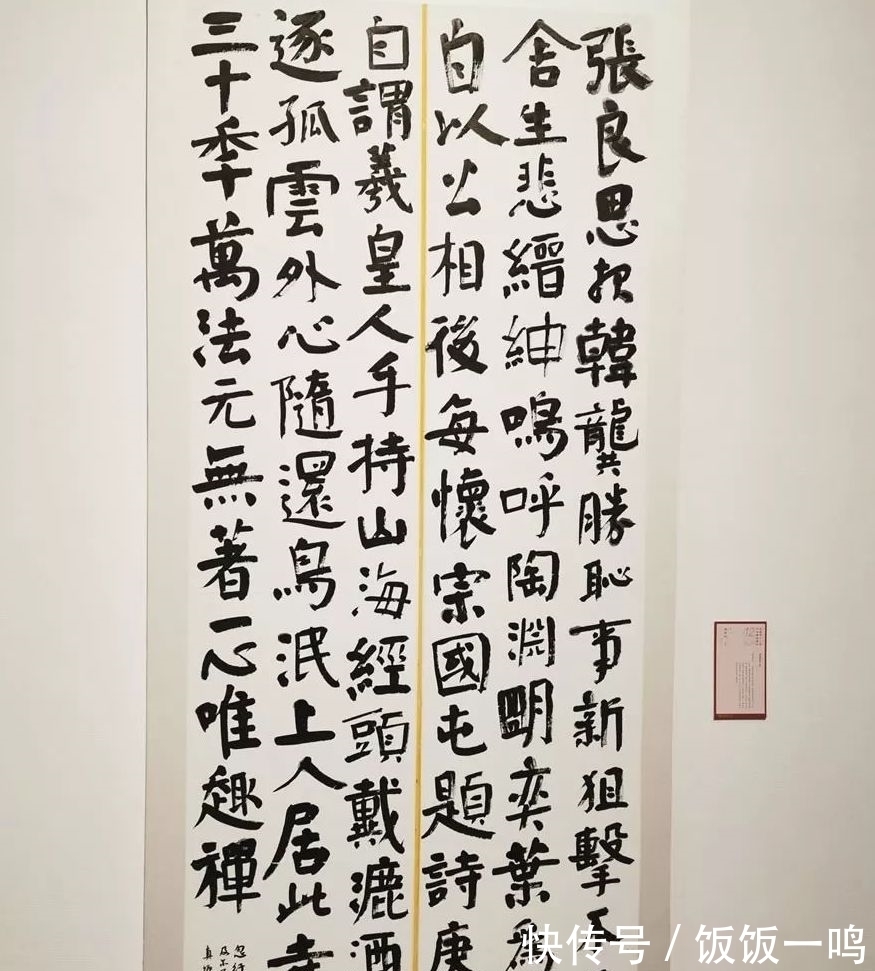 張良思報韓龔勝恥事新狙擊不
舍生悲縉紳嗚呼陶淵明奕葉為
自以公相後每懷宗國屯題詩庚
自謂羲皇人手持山海經頭戴漉酒
逐孤雲外心隨還鳥泯上人居此寺
三十季萬法元無著一心唯趣禪
快传号 / 饭饭一鸣